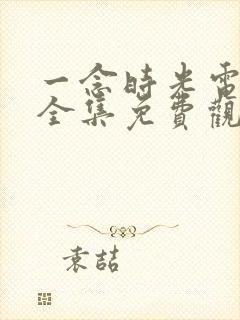 一念時光電
全集免費觀
袁喆